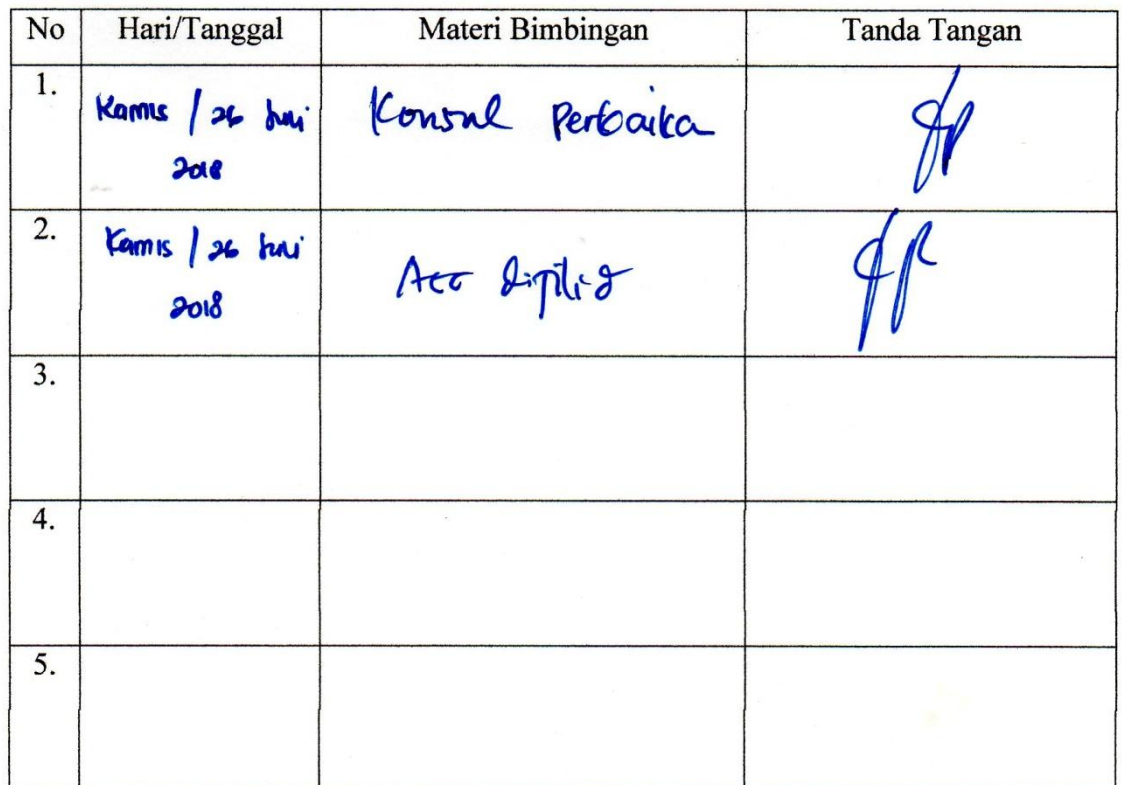 No Hari/Tanggal Materi Bimbingan Tanda Tangan
1. Kamis / 26 Juni Konsul Perbaika
2018
2. Kamis / 26 Juni Acc dijilid
2018
3.
4.
5.